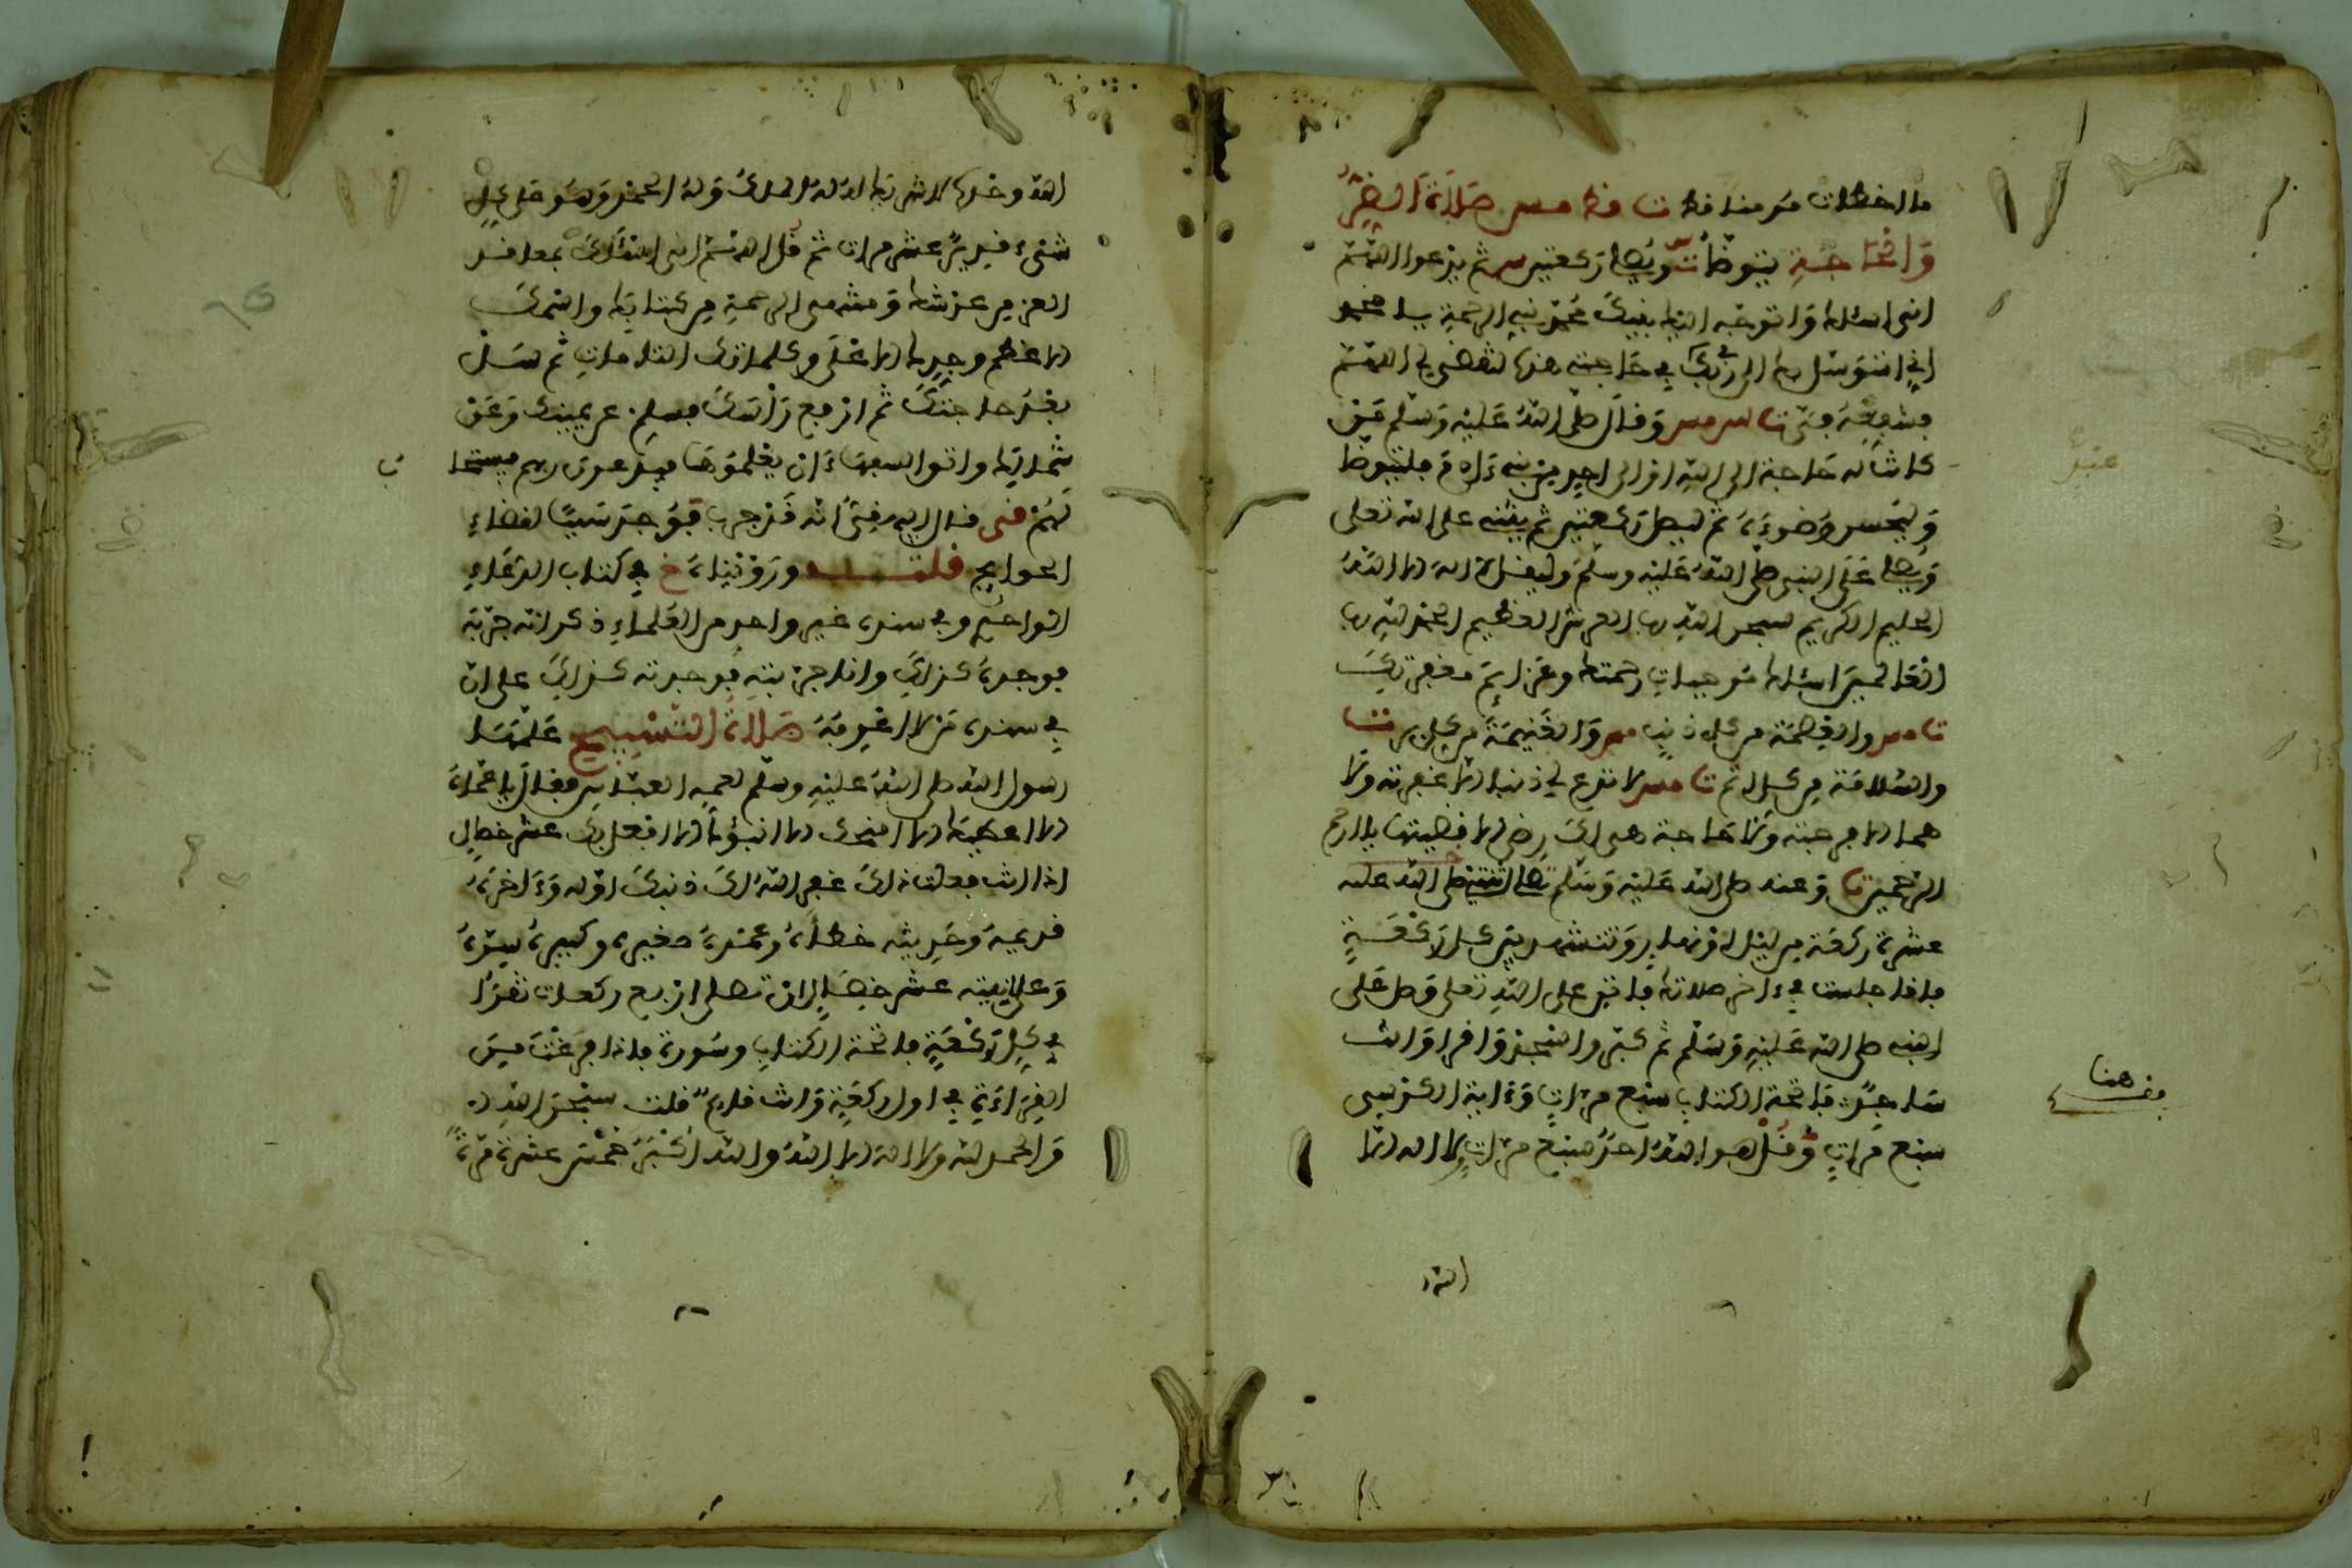 ما الخطات من منا فط ت فط مس صلاة الضر
والحاجة يتوضأ ويصل ركعتين س ثم يدعوا اللهم
اني اسئلك واتوجه اليك بنبيك محمد نبي الرحمة يا محمد
اني اتوسل بك الى ربك في حاجتي هذه لتقضى لي اللهم
فشفعه في ت س مس وقال صلى الله عليه وسلم من
كانت له حاجة الى الله او الى احد من بني ءادم فليتوضأ
وليحسن وضوءه ثم ليصل ركعتين ثم يثني على الله تعلى
ويصل على النبي صلى الله عليه وسلم وليقل لا اله الا الله
الحليم الكريم سبحن الله رب العرش العظيم الحمد لله رب
العالمين اسئلك موجبات رحمتك وعزائم مغفرتك
ت مس والعصمة من كل ذنب مس والغنيمة من كل بر ت
والسلامة من كل اثم ت مس لا تدع لي ذنبا الا غفرته ولا
هما الا فرجته ولا حاجة هي لك رضى الا قضيتها يا ارحم
الرحمين ت وعنه صلى الله عليه وسلم تصل اثنتي
عشرة ركعة من ليل او نهار وتتشهد بين كل ركعتين
فاذا جلست في ءاخر صلاتك فاثن على الله تعلى وصل على
النبي صلى الله عليه وسلم ثم كبر واسجد واقرا وانت
ساجد فاتحة الكتاب سبع مرات وءاية الكرسي
سبع مرات وقل هو الله احد سبع مرات ولا اله الا
هنا
الله
الله وحده لا شريك له له الملك وله الحمد وهو على كل
شيء قدير عشر مرات ثم قل اللهم اني اسئلك بمعاقد
العز من عرشك ومنتهى الرحمة من كتابك واسمك
الاعظم وجدك الاعلى وكلماتك التامات ثم سل
بعد حاجتك ثم ارفع راسك فسلم عن يمينك وعن
شمالك واتوا السفهاء ان يعلموها فيدعون ربهم فيستجا
لهم قي قال البيهقي انه قد جرب فوجد سببا لقضاء
الحوايج قلت ورويناه في كتاب الدعاء
للواحدي وفي سنده غير واحد من العلماء ذكر انه جربه
فوجده كذلك وانا جربته فوجدته كذلك على ان
في سنده من لا اعرفه صلاة التسبيح علمها
رسول الله صلى الله عليه وسلم لعمه العباس فقال يا عماه
الا اعطيك الا امنحك الا احبوك الا افعل بك عشر خصال
اذا انت فعلت ذلك غفر الله لك ذنبك اوله وءاخره
قديمه وحديثه خطأه وعمده صغيره وكبيره سره
وعلانيته عشر خصال ان تصلي اربع ركعات تقرا
في كل ركعة فاتحة الكتاب وسورة فاذا فرغت من
القراءة في اول ركعة وانت قايم قلت سبحن الله
والحمد لله ولا اله الا الله والله اكبر خمس عشرة مرة